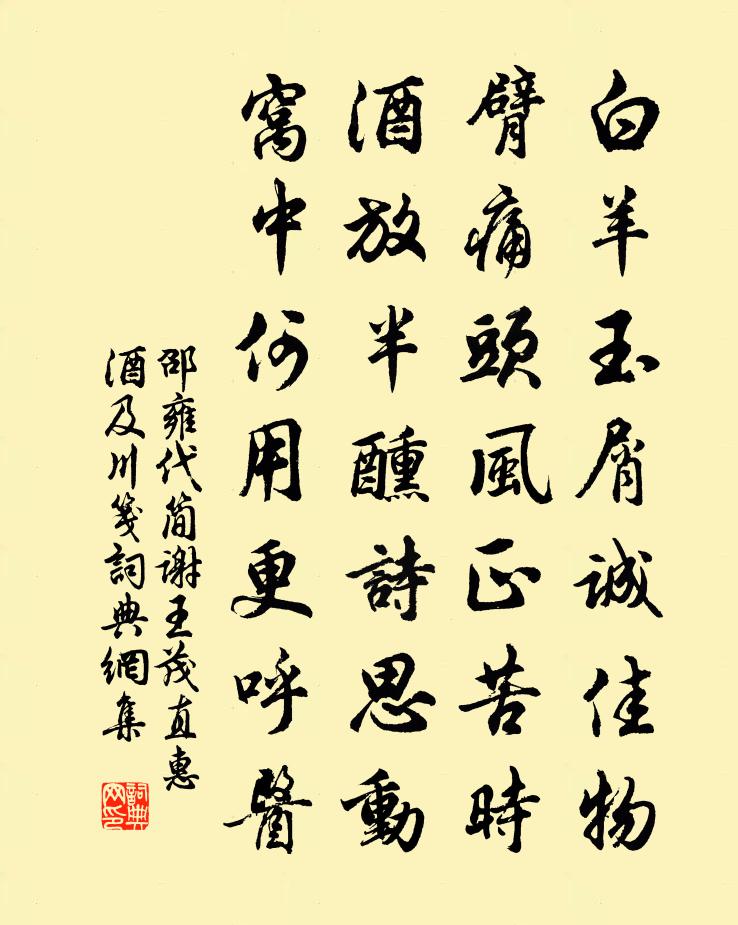 白羊玉屑誠佳物
臂痛頭風正苦時
酒放半醺詩思動
窩中何用更呼醫
邵雍代简謝王茂直惠
酒及川箋詞典網集
詞典网印